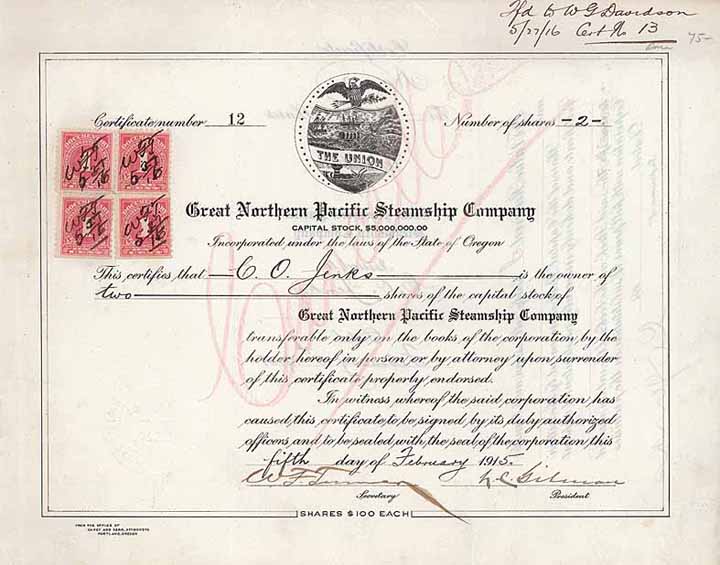 Tfd to W G Davidson
5/27/16 Cert No 13
75-
Certificate number 12
Number of shares -2-
THE UNION
Great Northern Pacific Steamship Company
CAPITAL STOCK, $5,000,000.00
Incorporated under the laws of the State of Oregon
This certifies that C. O. Jenks is the owner of
two shares of the capital stock of
Great Northern Pacific Steamship Company
transferable only on the books of the corporation by the
holder hereof in person or by attorney upon surrender
of this certificate properly endorsed.
In witness whereof the said corporation has
caused this certificate to be signed by its duly authorized
officers, and to be sealed with the seal of the corporation, this
fifth day of February 1915.
W F Turner L C Gilman
Secretary President
SHARES $100 EACH
FROM THE OFFICES OF
CAREY AND KERR, ATTORNEYS
PORTLAND, OREGON
Cancelled